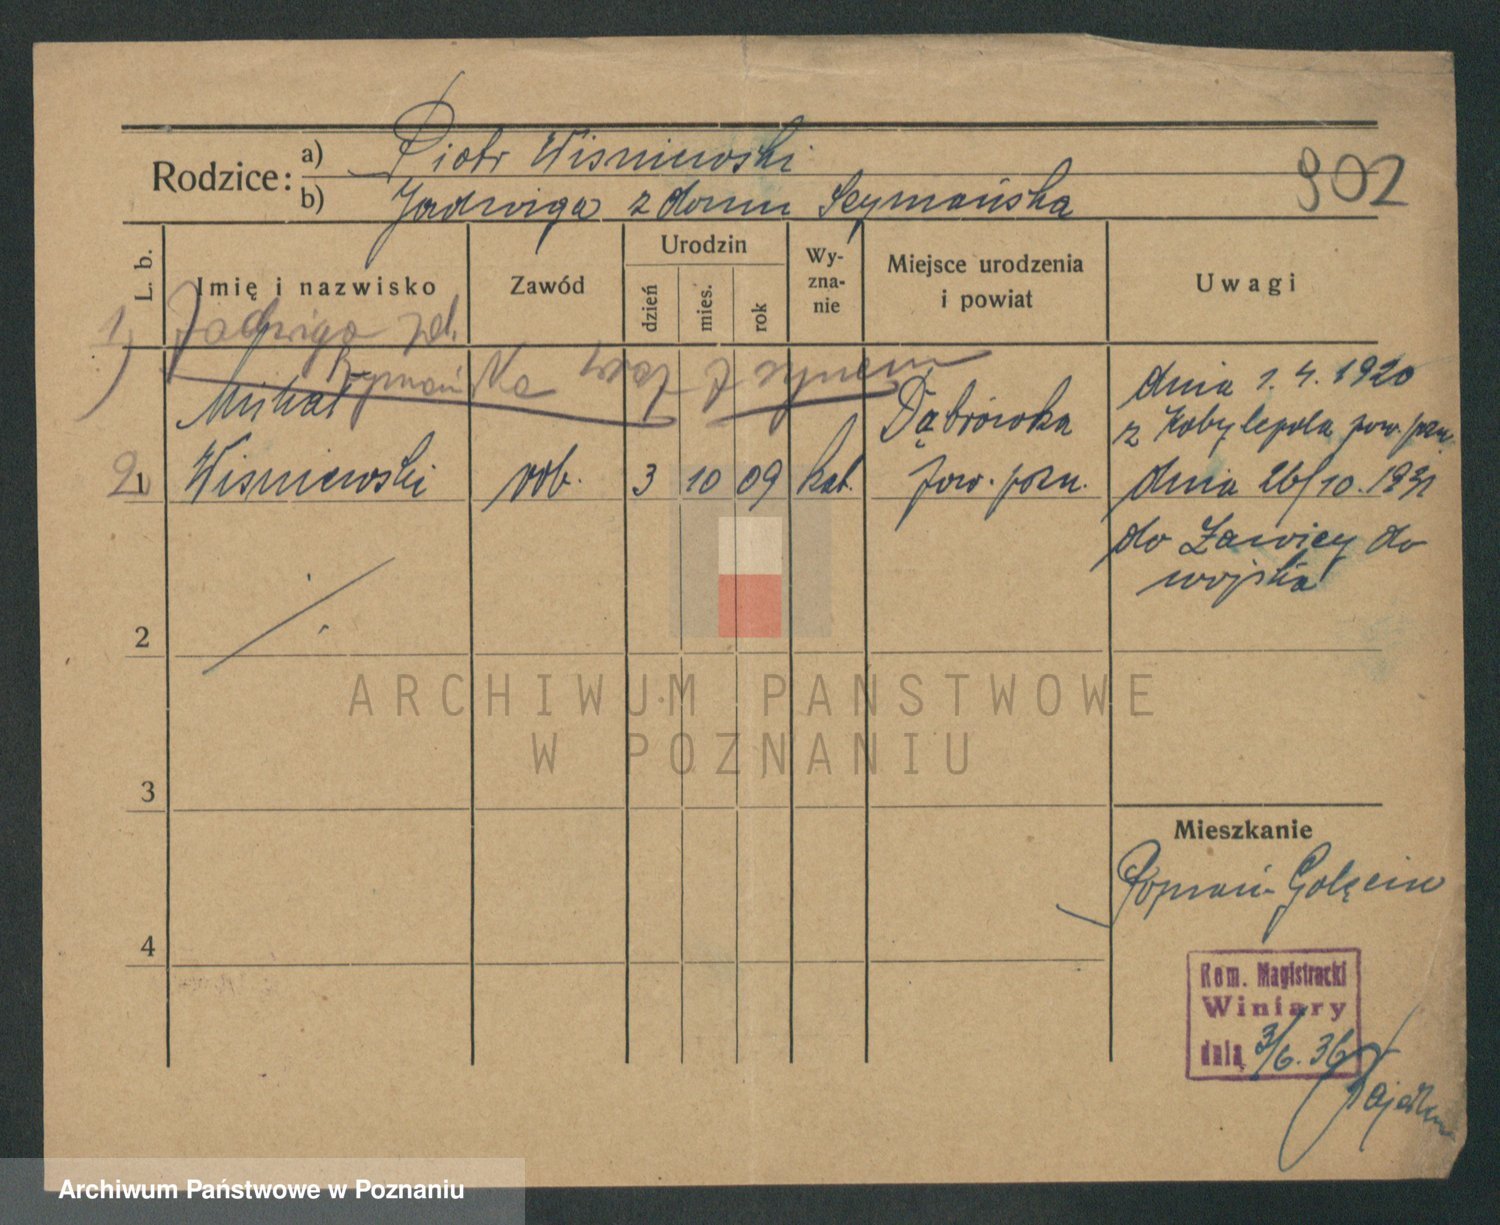 902
Rodzice:
a) Piotr Wisniewski
b) Jadwiga z domu Szymańska
L. b.
Imię i nazwisko
Zawód
Urodzin
dzień
mies.
rok
Wy-
zna-
nie
Miejsce urodzenia
i powiat
Uwagi
1) Jadwiga zd.
Szymańska wraz z synem
2) 1 Michał
Wisniewski
rob.
3 10 09
kat.
Dąbrówka
pow. pozn.
dnia 1. 4. 1920
z Kobylepola pow. pozn.
dnia 26/10. 1931
do Ławicy do
wojska
2
3
4
Mieszkanie
Poznań-Golęcin
Kom. Magistracki
Winiary
dnia 3/6. 36
ARCHIWUM PAŃSTWOWE
W POZNANIU
Archiwum Państwowe w Poznaniu